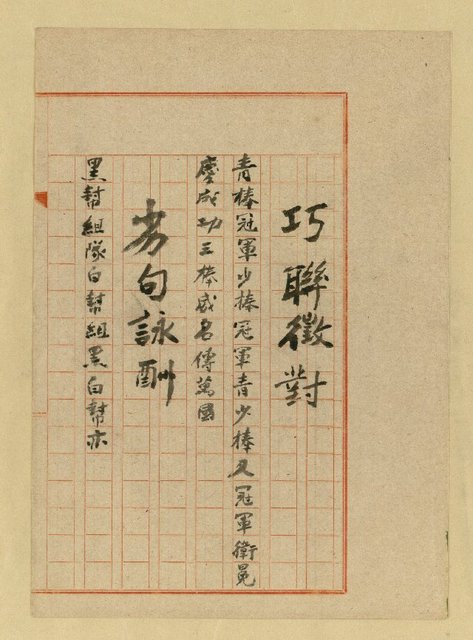 巧聯徵對
青棒冠軍少棒冠軍青少棒又冠軍衛冕
慶成功三棒威名傳萬國
劣句詠酬
黑幫組隊白幫組黑白幫亦